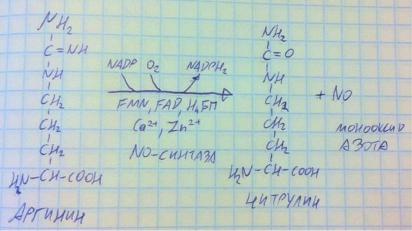 NH₂
C=NH
NH
CH₂
CH₂
CH₂
H₂N-CH-COOH
АРГИНИН
NADP O₂ NADPH₂
FMN, FAD, H₄БП
Ca²⁺, Zn²⁺
NO-СИНТАЗА
NH₂
C=O
NH
CH₂
CH₂
CH₂
H₂N-CH-COOH
ЦИТРУЛИН
+ NO
МОНООКСИД
АЗОТА